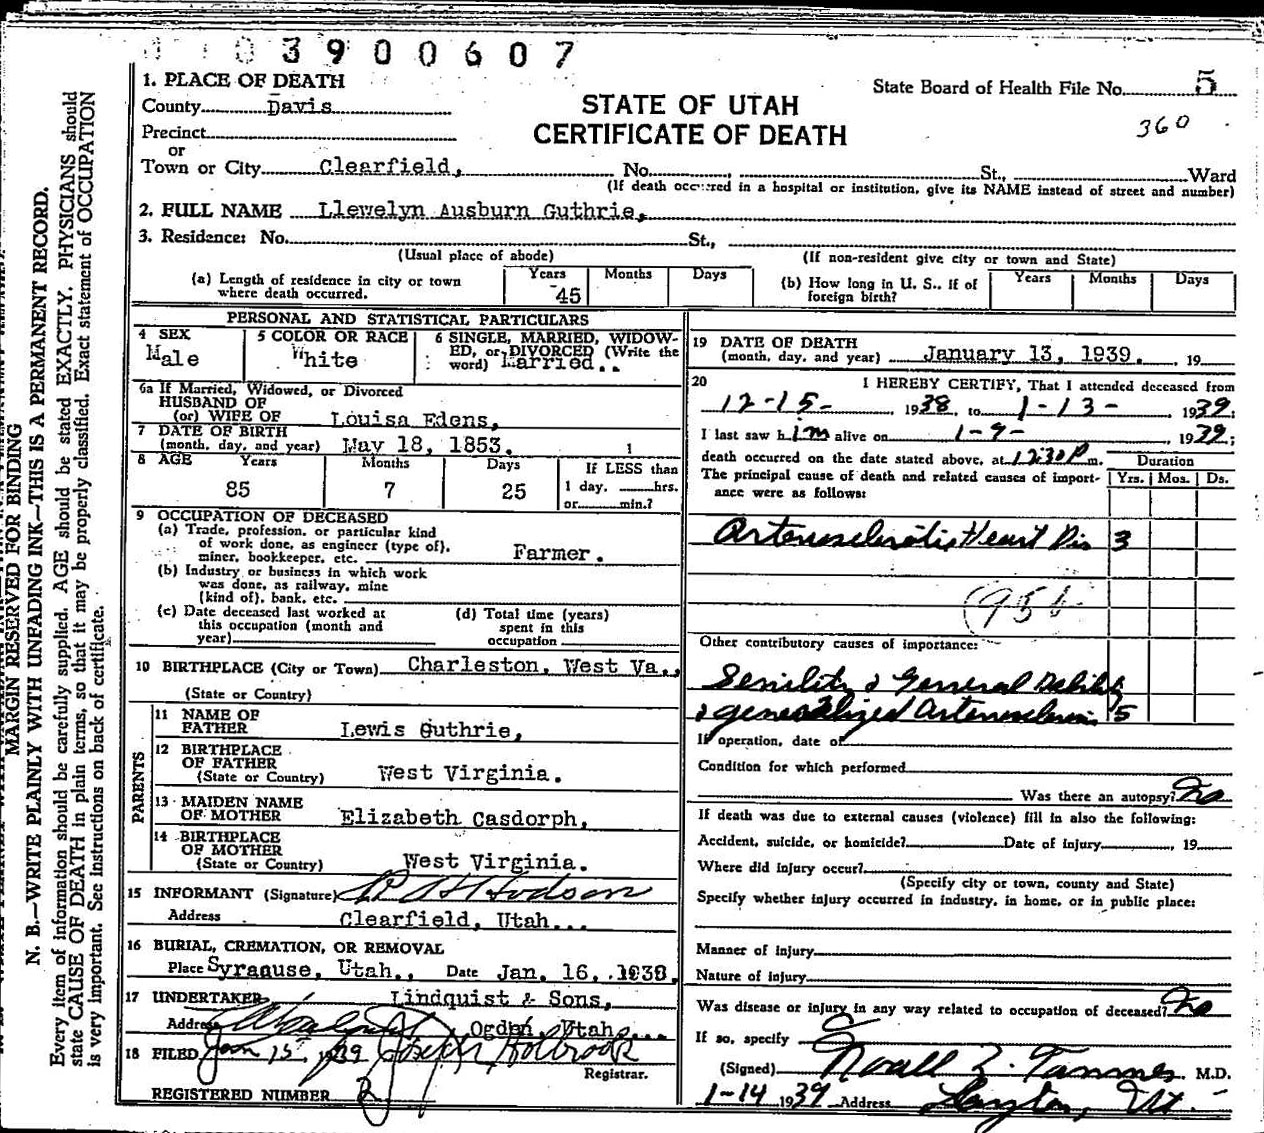 3900607
1. PLACE OF DEATH
County Davis
Precinct
or
Town or City Clearfield, No. St., Ward
(If death occurred in a hospital or institution, give its NAME instead of street and number)
STATE OF UTAH
CERTIFICATE OF DEATH
State Board of Health File No. 5
360
2. FULL NAME Llewelyn Ausburn Guthrie,
3. Residence: No. St.,
(Usual place of abode) (If non-resident give city or town and State)
(a) Length of residence in city or town where death occurred. Years 45 Months Days
(b) How long in U. S., if of foreign birth? Years Months Days
PERSONAL AND STATISTICAL PARTICULARS
4 SEX Male
5 COLOR OR RACE White
6 SINGLE, MARRIED, WIDOWED, or DIVORCED (Write the word) Married..
6a If Married, Widowed, or Divorced
HUSBAND OF
(or) WIFE OF Louisa Edens,
7 DATE OF BIRTH
(month, day, and year) May 18, 1853. 1
8 AGE Years Months Days If LESS than
85 7 25 1 day, hrs.
or min.?
9 OCCUPATION OF DECEASED
(a) Trade, profession, or particular kind
of work done, as engineer (type of),
miner, bookkeeper, etc. Farmer.
(b) Industry or business in which work
was done, as railway, mine
(kind of), bank, etc.
(c) Date deceased last worked at
this occupation (month and
year)
(d) Total time (years)
spent in this
occupation
10 BIRTHPLACE (City or Town) Charleston, West Va.,
(State or Country)
PARENTS
11 NAME OF
FATHER Lewis Guthrie,
12 BIRTHPLACE
OF FATHER
(State or Country) West Virginia.
13 MAIDEN NAME
OF MOTHER Elizabeth Casdorph,
14 BIRTHPLACE
OF MOTHER
(State or Country) West Virginia.
15 INFORMANT (Signature) Hodson
Address Clearfield, Utah...
16 BURIAL, CREMATION, OR REMOVAL
Place Syracuse, Utah., Date Jan. 16, 1939,
17 UNDERTAKER Lindquist & Sons,
Address Ogden, Utah...
18 FILED Jan 15 1939 Joseph Holbrook
Registrar.
REGISTERED NUMBER 2
19 DATE OF DEATH
(month, day, and year) January 13, 1939. 19
20 I HEREBY CERTIFY, That I attended deceased from
12-15- 1938, to 1-13- 1939;
I last saw him alive on 1-9- 1939;
death occurred on the date stated above, at 12:30 P m.
The principal cause of death and related causes of importance were as follows:
Duration
Yrs. Mos. Ds.
Arteriosclerotic Heart Dis 3
(95b)
Other contributory causes of importance:
Senility & General Debility
& generalized Arteriosclerosis 5
If operation, date of
Condition for which performed
Was there an autopsy? No
If death was due to external causes (violence) fill in also the following:
Accident, suicide, or homicide? Date of injury, 19
Where did injury occur?
(Specify city or town, county and State)
Specify whether injury occurred in industry, in home, or in public place:
Manner of injury
Nature of injury
Was disease or injury in any way related to occupation of deceased? No
If so, specify
(Signed) Noall Z. Tanner M.D.
1-14 1939 Address Layton, Ut.
MARGIN RESERVED FOR BINDING
N. B.—WRITE PLAINLY WITH UNFADING INK—THIS IS A PERMANENT RECORD.
Every item of information should be carefully supplied. AGE should be stated EXACTLY. PHYSICIANS should
state CAUSE OF DEATH in plain terms, so that it may be properly classified. Exact statement of OCCUPATION
is very important. See instructions on back of certificate.